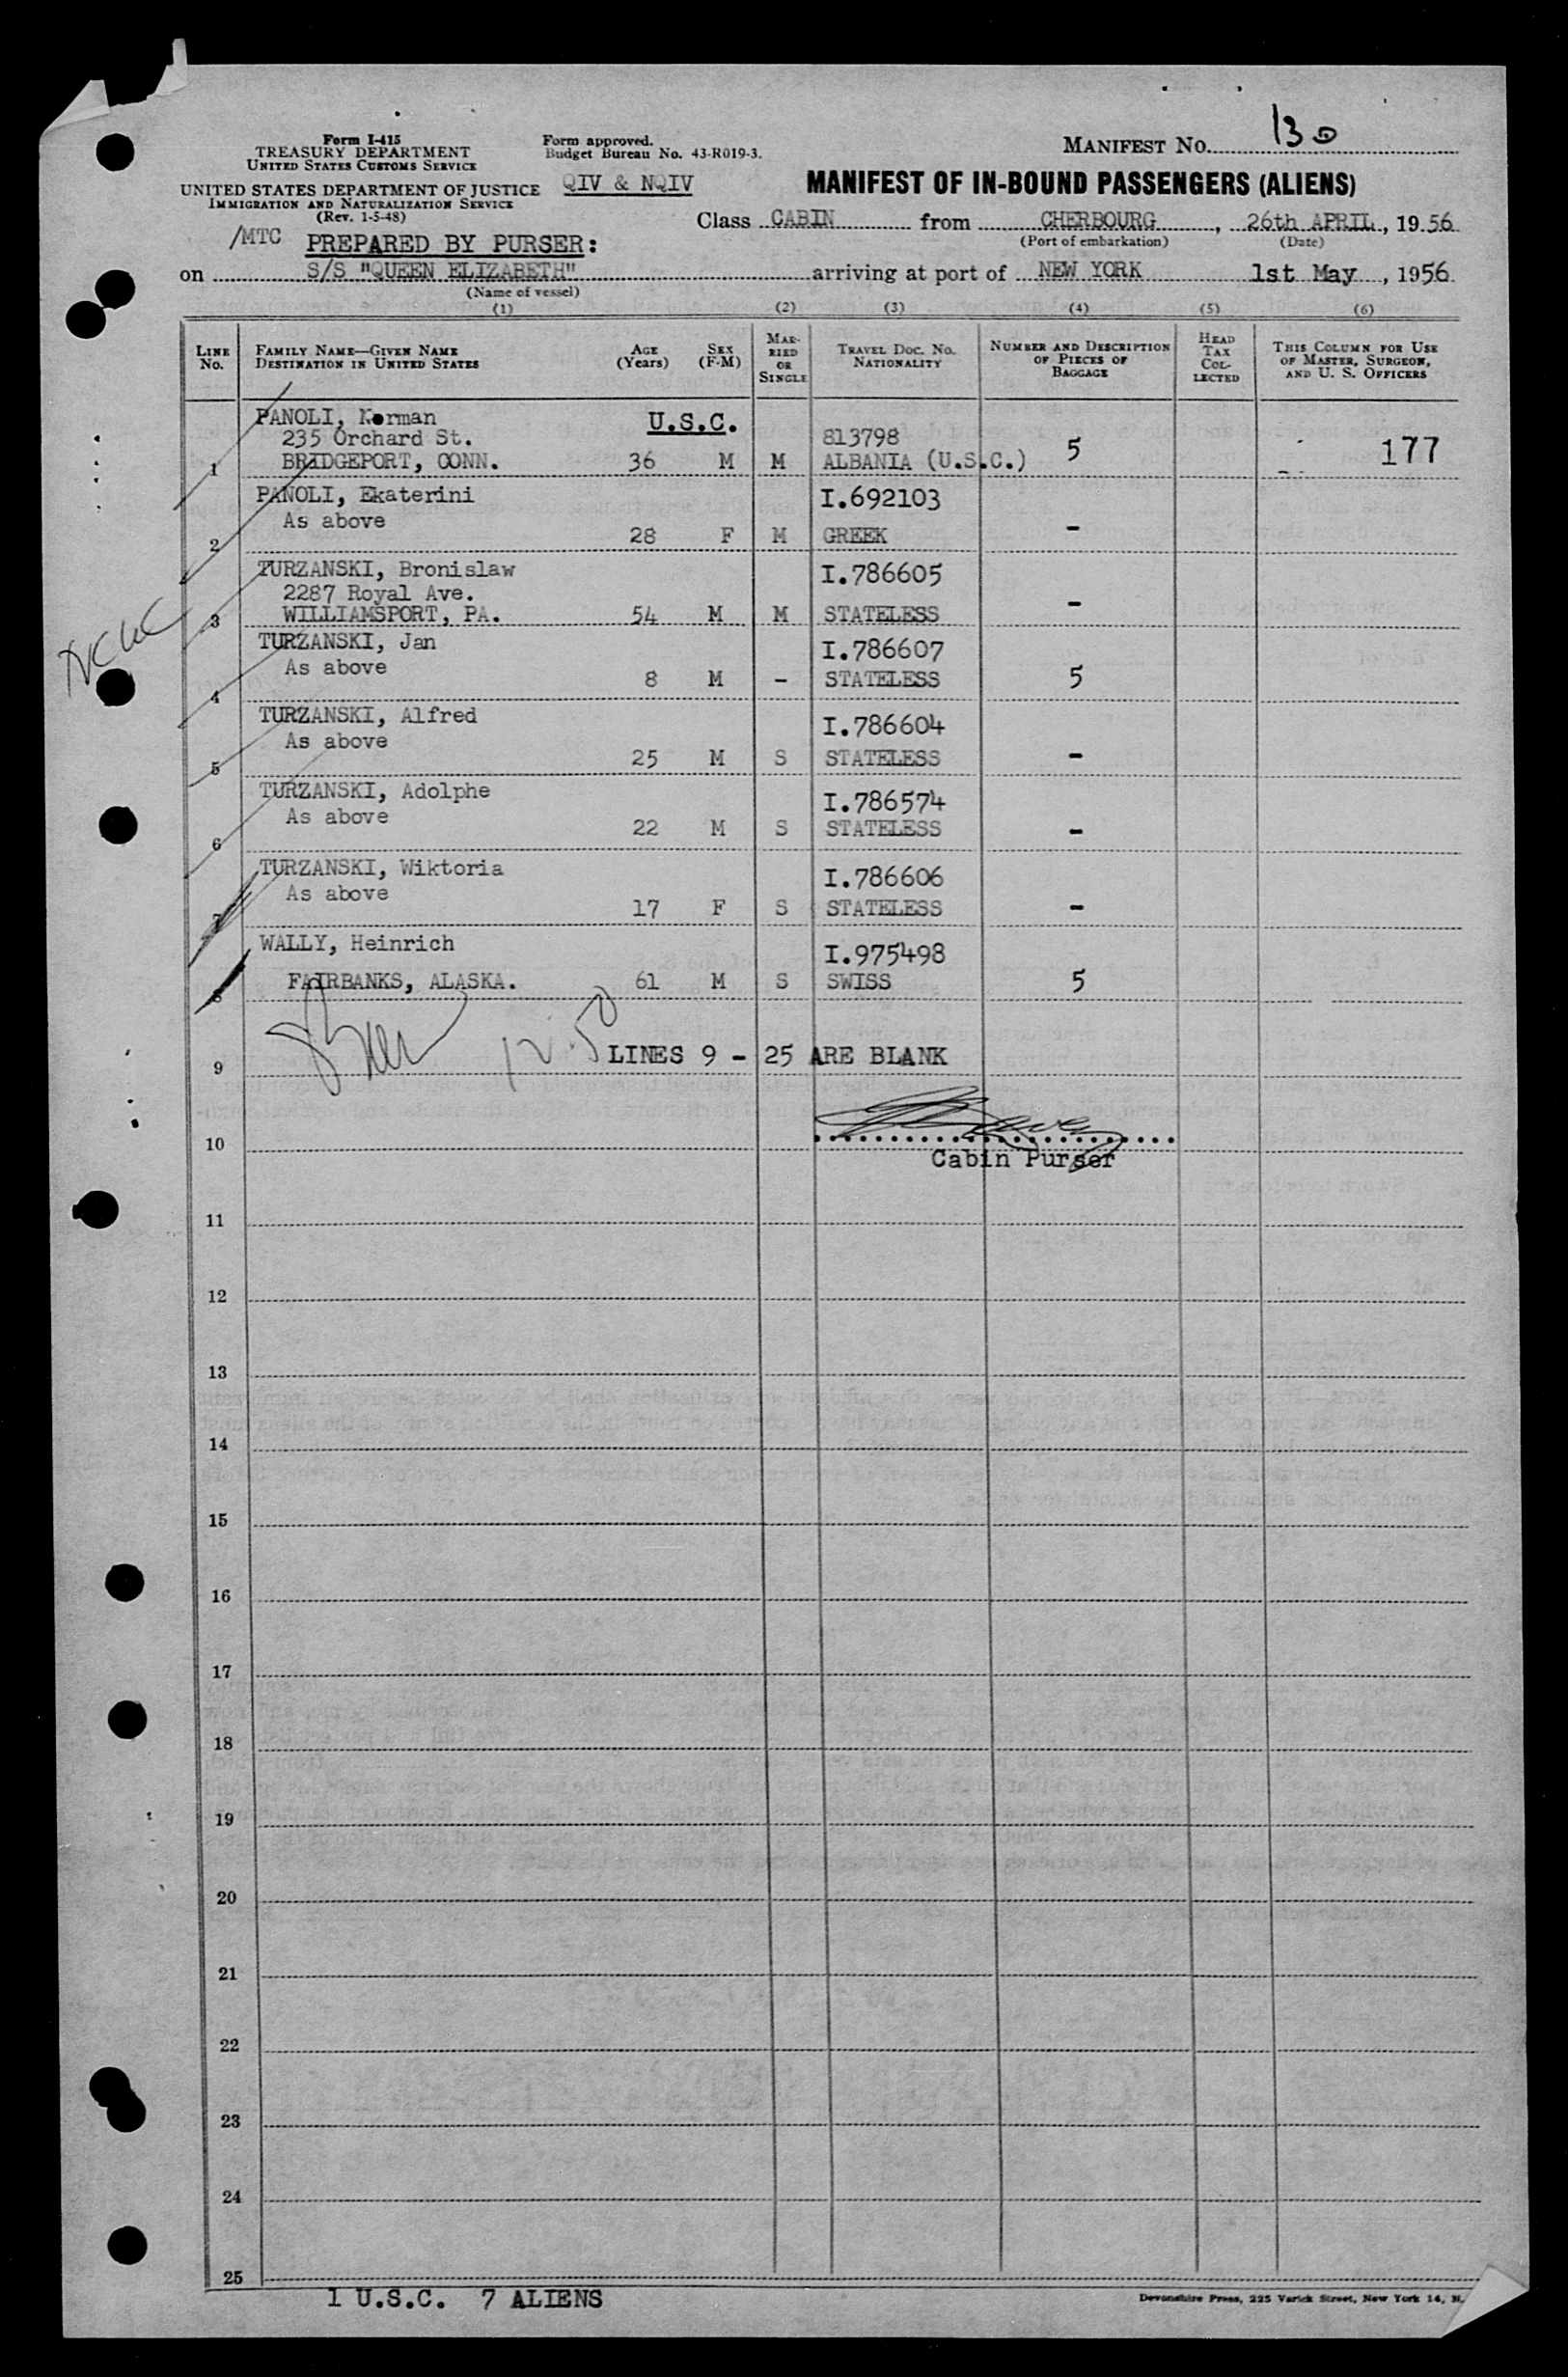 Form I-415
TREASURY DEPARTMENT
UNITED STATES CUSTOMS SERVICE
UNITED STATES DEPARTMENT OF JUSTICE
IMMIGRATION AND NATURALIZATION SERVICE
(Rev. 1-5-48)
Form approved.
Budget Bureau No. 43-R019-3.
QIV & NQIV
MANIFEST NO. 130
MANIFEST OF IN-BOUND PASSENGERS (ALIENS)
Class CABIN from CHERBOURG, 26th APRIL, 1956
(Port of embarkation) (Date)
/MTC PREPARED BY PURSER:
on S/S "QUEEN ELIZABETH" arriving at port of NEW YORK 1st May, 1956
(Name of vessel)
(1) (2) (3) (4) (5) (6)
LINE NO. FAMILY NAME—GIVEN NAME DESTINATION IN UNITED STATES AGE (Years) SEX (F-M) MARRIED OR SINGLE TRAVEL DOC. NO. NATIONALITY NUMBER AND DESCRIPTION OF PIECES OF BAGGAGE HEAD TAX COLLECTED THIS COLUMN FOR USE OF MASTER, SURGEON, AND U. S. OFFICERS
PANOLI, Kerman U.S.C.
235 Orchard St. 813798
1 BRIDGEPORT, CONN. 36 M M ALBANIA (U.S.C.) 5 177
PANOLI, Ekaterini I.692103
As above
2 28 F M GREEK -
TURZANSKI, Bronislaw I.786605
2287 Royal Ave.
3 WILLIAMSPORT, PA. 54 M M STATELESS -
TURZANSKI, Jan I.786607
As above
4 8 M - STATELESS 5
TURZANSKI, Alfred I.786604
As above
5 25 M S STATELESS -
TURZANSKI, Adolphe I.786574
As above
6 22 M S STATELESS -
TURZANSKI, Wiktoria I.786606
As above
7 17 F S STATELESS -
WALLY, Heinrich I.975498
8 FAIRBANKS, ALASKA. 61 M S SWISS 5
12.50
9 LINES 9 - 25 ARE BLANK
10
Cabin Purser
11
12
13
14
15
16
17
18
19
20
21
22
23
24
25
1 U.S.C. 7 ALIENS
Devonshire Press, 225 Varick Street, New York 14, N.